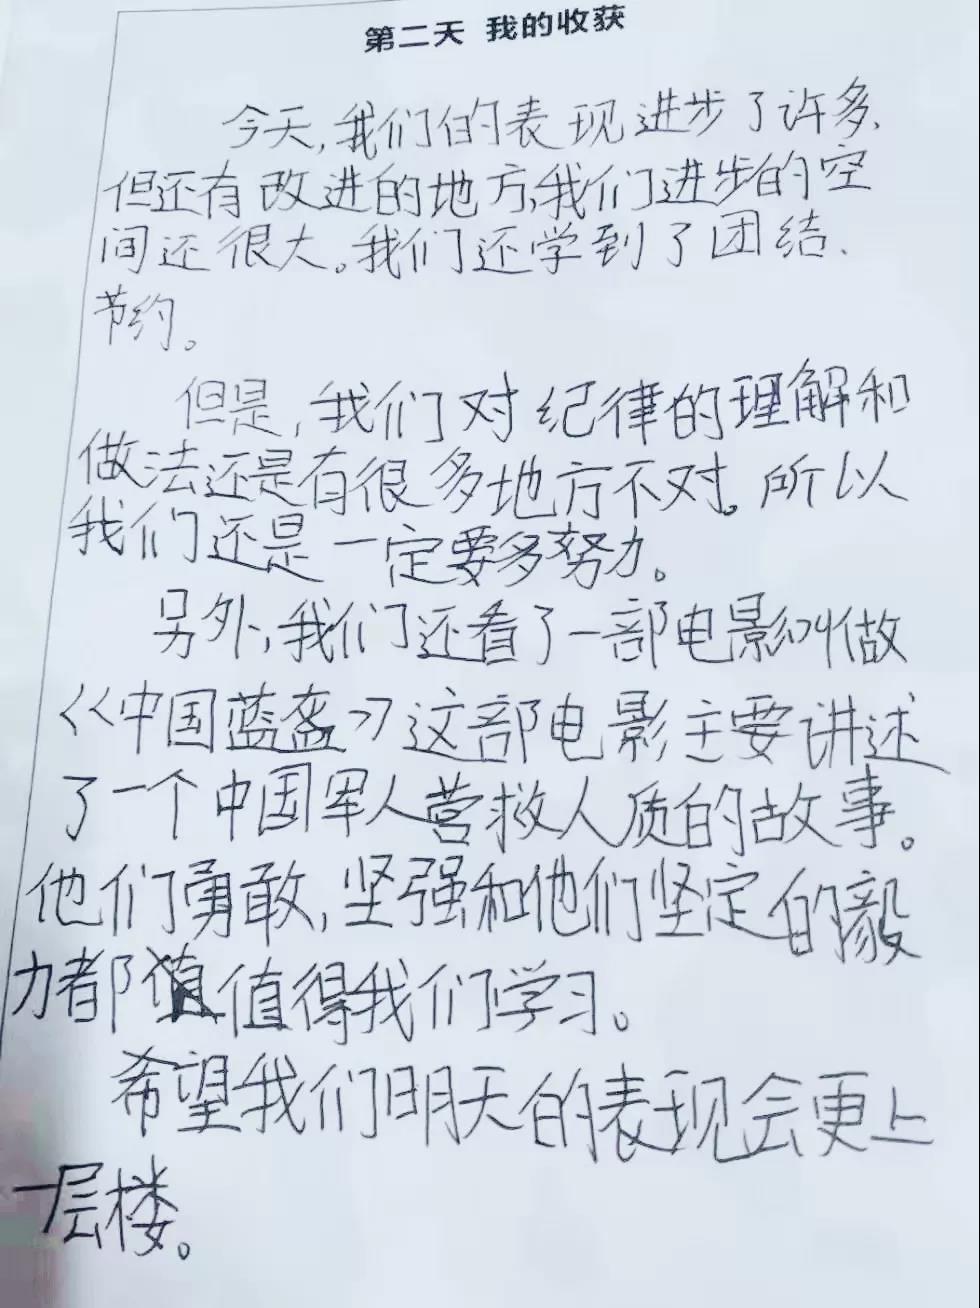 第二天 我的收获
今天，我们的表现进步了许多、
但还有改进的地方，我们进步的空
间还很大。我们还学到了团结、
节约。
但是，我们对纪律的理解和
做法还是有很多地方不对。所以
我们还是一定要多努力。
另外，我们还看了一部电影叫做
《中国蓝盔》这部电影主要讲述
了一个中国军人营救人质的故事。
他们勇敢，坚强和他们坚定的毅
力都值值得我们学习。
希望我们明天的表现会更上
一层楼。